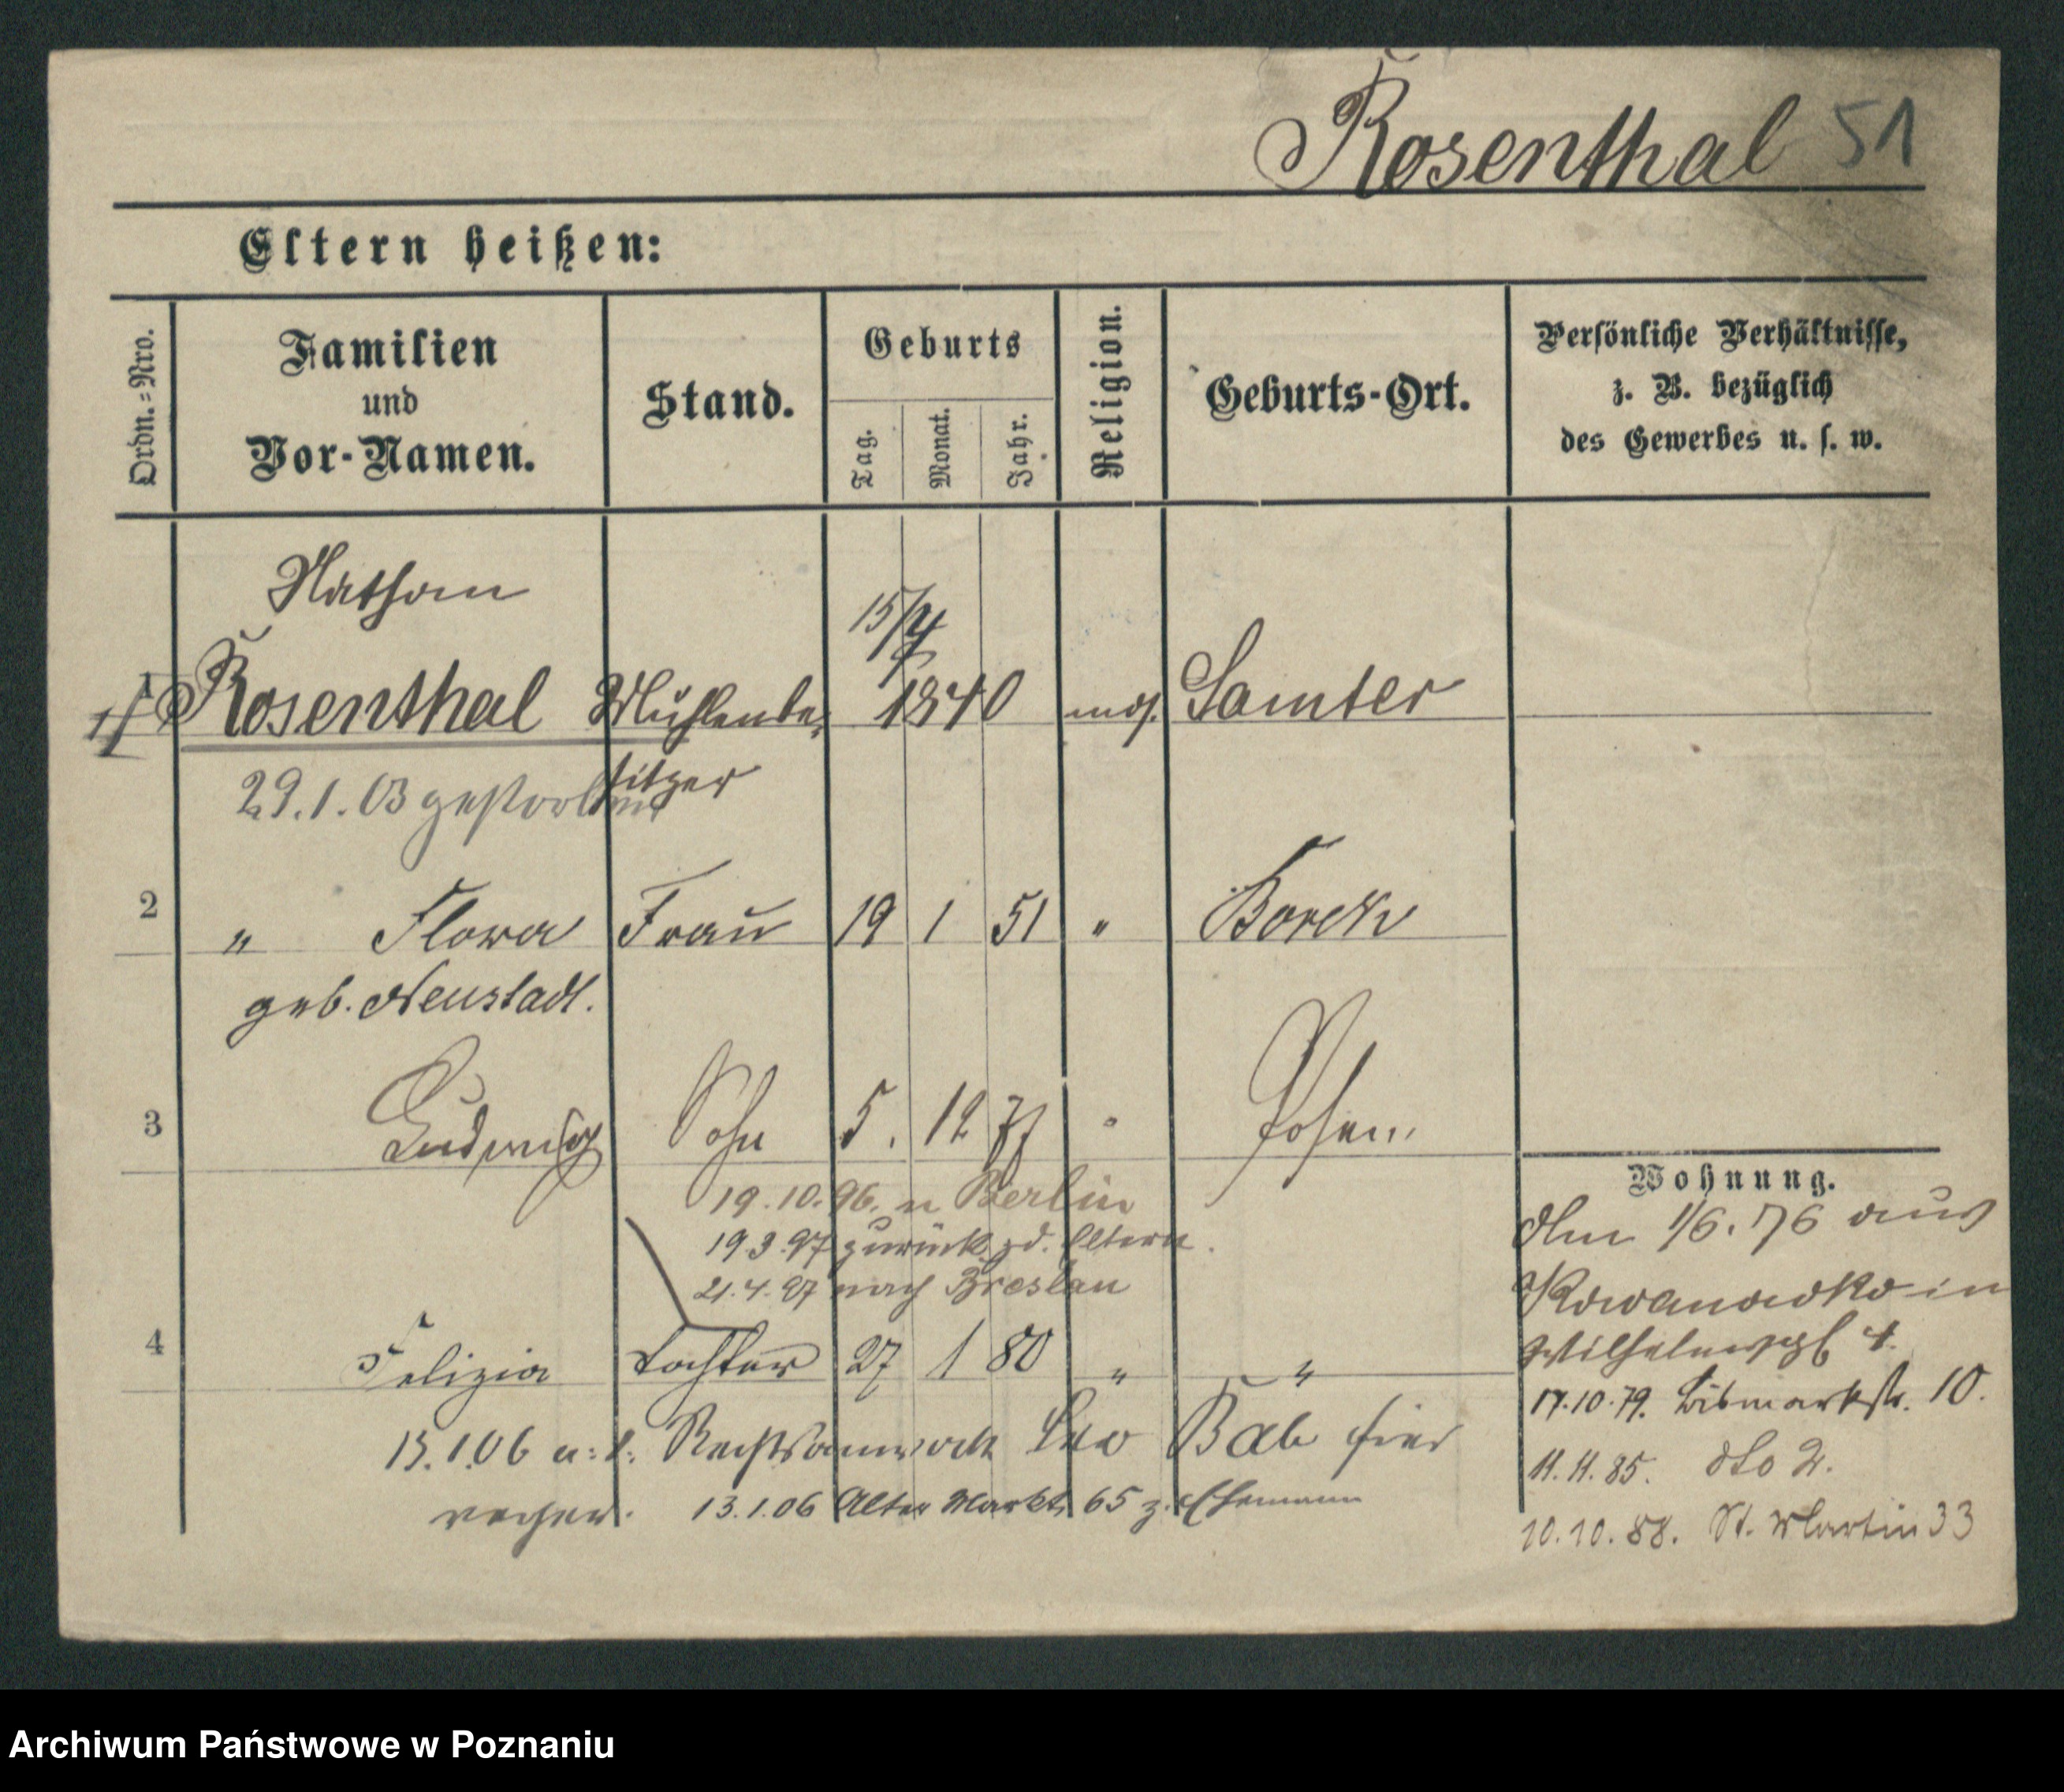 Rosenthal 51
Eltern heißen:
Ordn.-Nro.
Familien
und
Vor-Namen.
Stand.
Geburts
Tag.
Monat.
Jahr.
Religion.
Geburts-Ort.
Persönliche Verhältnisse,
z. B. bezüglich
des Gewerbes u. s. w.
Nathan
15/4
Rosenthal Mühlenbe- 1840 mos. Samter
sitzer
29.1.03 gestorben
2 " Flora Frau 19 1 51 " Borek
geb. Neustadt.
3 Ludwig Sohn 5. 12 77 " Posen
19.10.96. n Berlin
19.3.97 zurück z d. Eltern.
21.4.97 nach Breslau
4 Felizia Tochter 27 1 80 " "
13.1.06 Rechtsanwalt Leo Bab hier
13.1.06 Alter Markt 65 z. Ehemann
Wohnung.
Am 1/6.76 aus
Kowanowko in
Wilhelmspl 4.
17.10.79. Bismarkstr. 10.
11.11.85. dto 2.
10.10.88. St. Martin 33
Archiwum Państwowe w Poznaniu